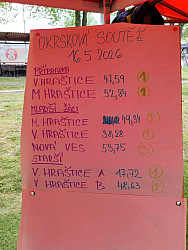 OKRSKOVÁ SOUTĚŽ
16.5 2026
PŘÍPRAVKA
V. HRAŠTICE 47,59 1
M HRAŠTICE 52,84 1
MLADŠÍ ŽÁCI
M. HRAŠTICE 49,34 2
V. HRAŠTICE 38,28 1
NOVÁ VES 53,75 2
STARŠÍ
V. HRAŠTICE A 17,72 1
V. HRAŠTICE B 48,63 2